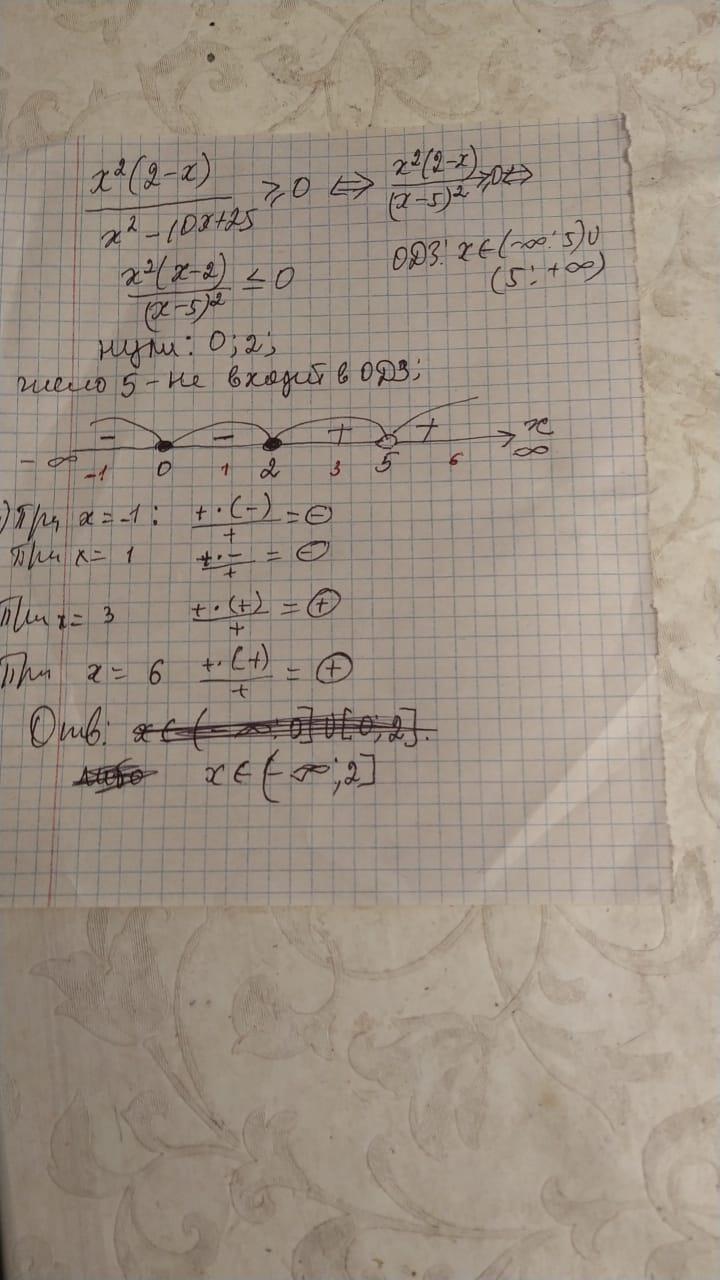 x²(2-x)/(x²-10x+25) ≥ 0 ⇔ x²(2-x)/(x-5)² ≥ 0 ⇔
x²(x-2)/(x-5)² ≤ 0
ОДЗ: x∈(-∞; 5)∪
(5; +∞)
нули: 0; 2;
число 5 - не входит в ОДЗ;
- - + + x
-∞ -1 0 1 2 3 5 6 ∞
) При x = -1: +·(-)/+ = ⊖
При x = 1 +·-/+ = ⊖
При x = 3 +·(+)/+ = ⊕
При x = 6 +·(+)/+ = ⊕
Отв: x∈(-∞; 0]∪[0; 2].
x∈(-∞; 2]